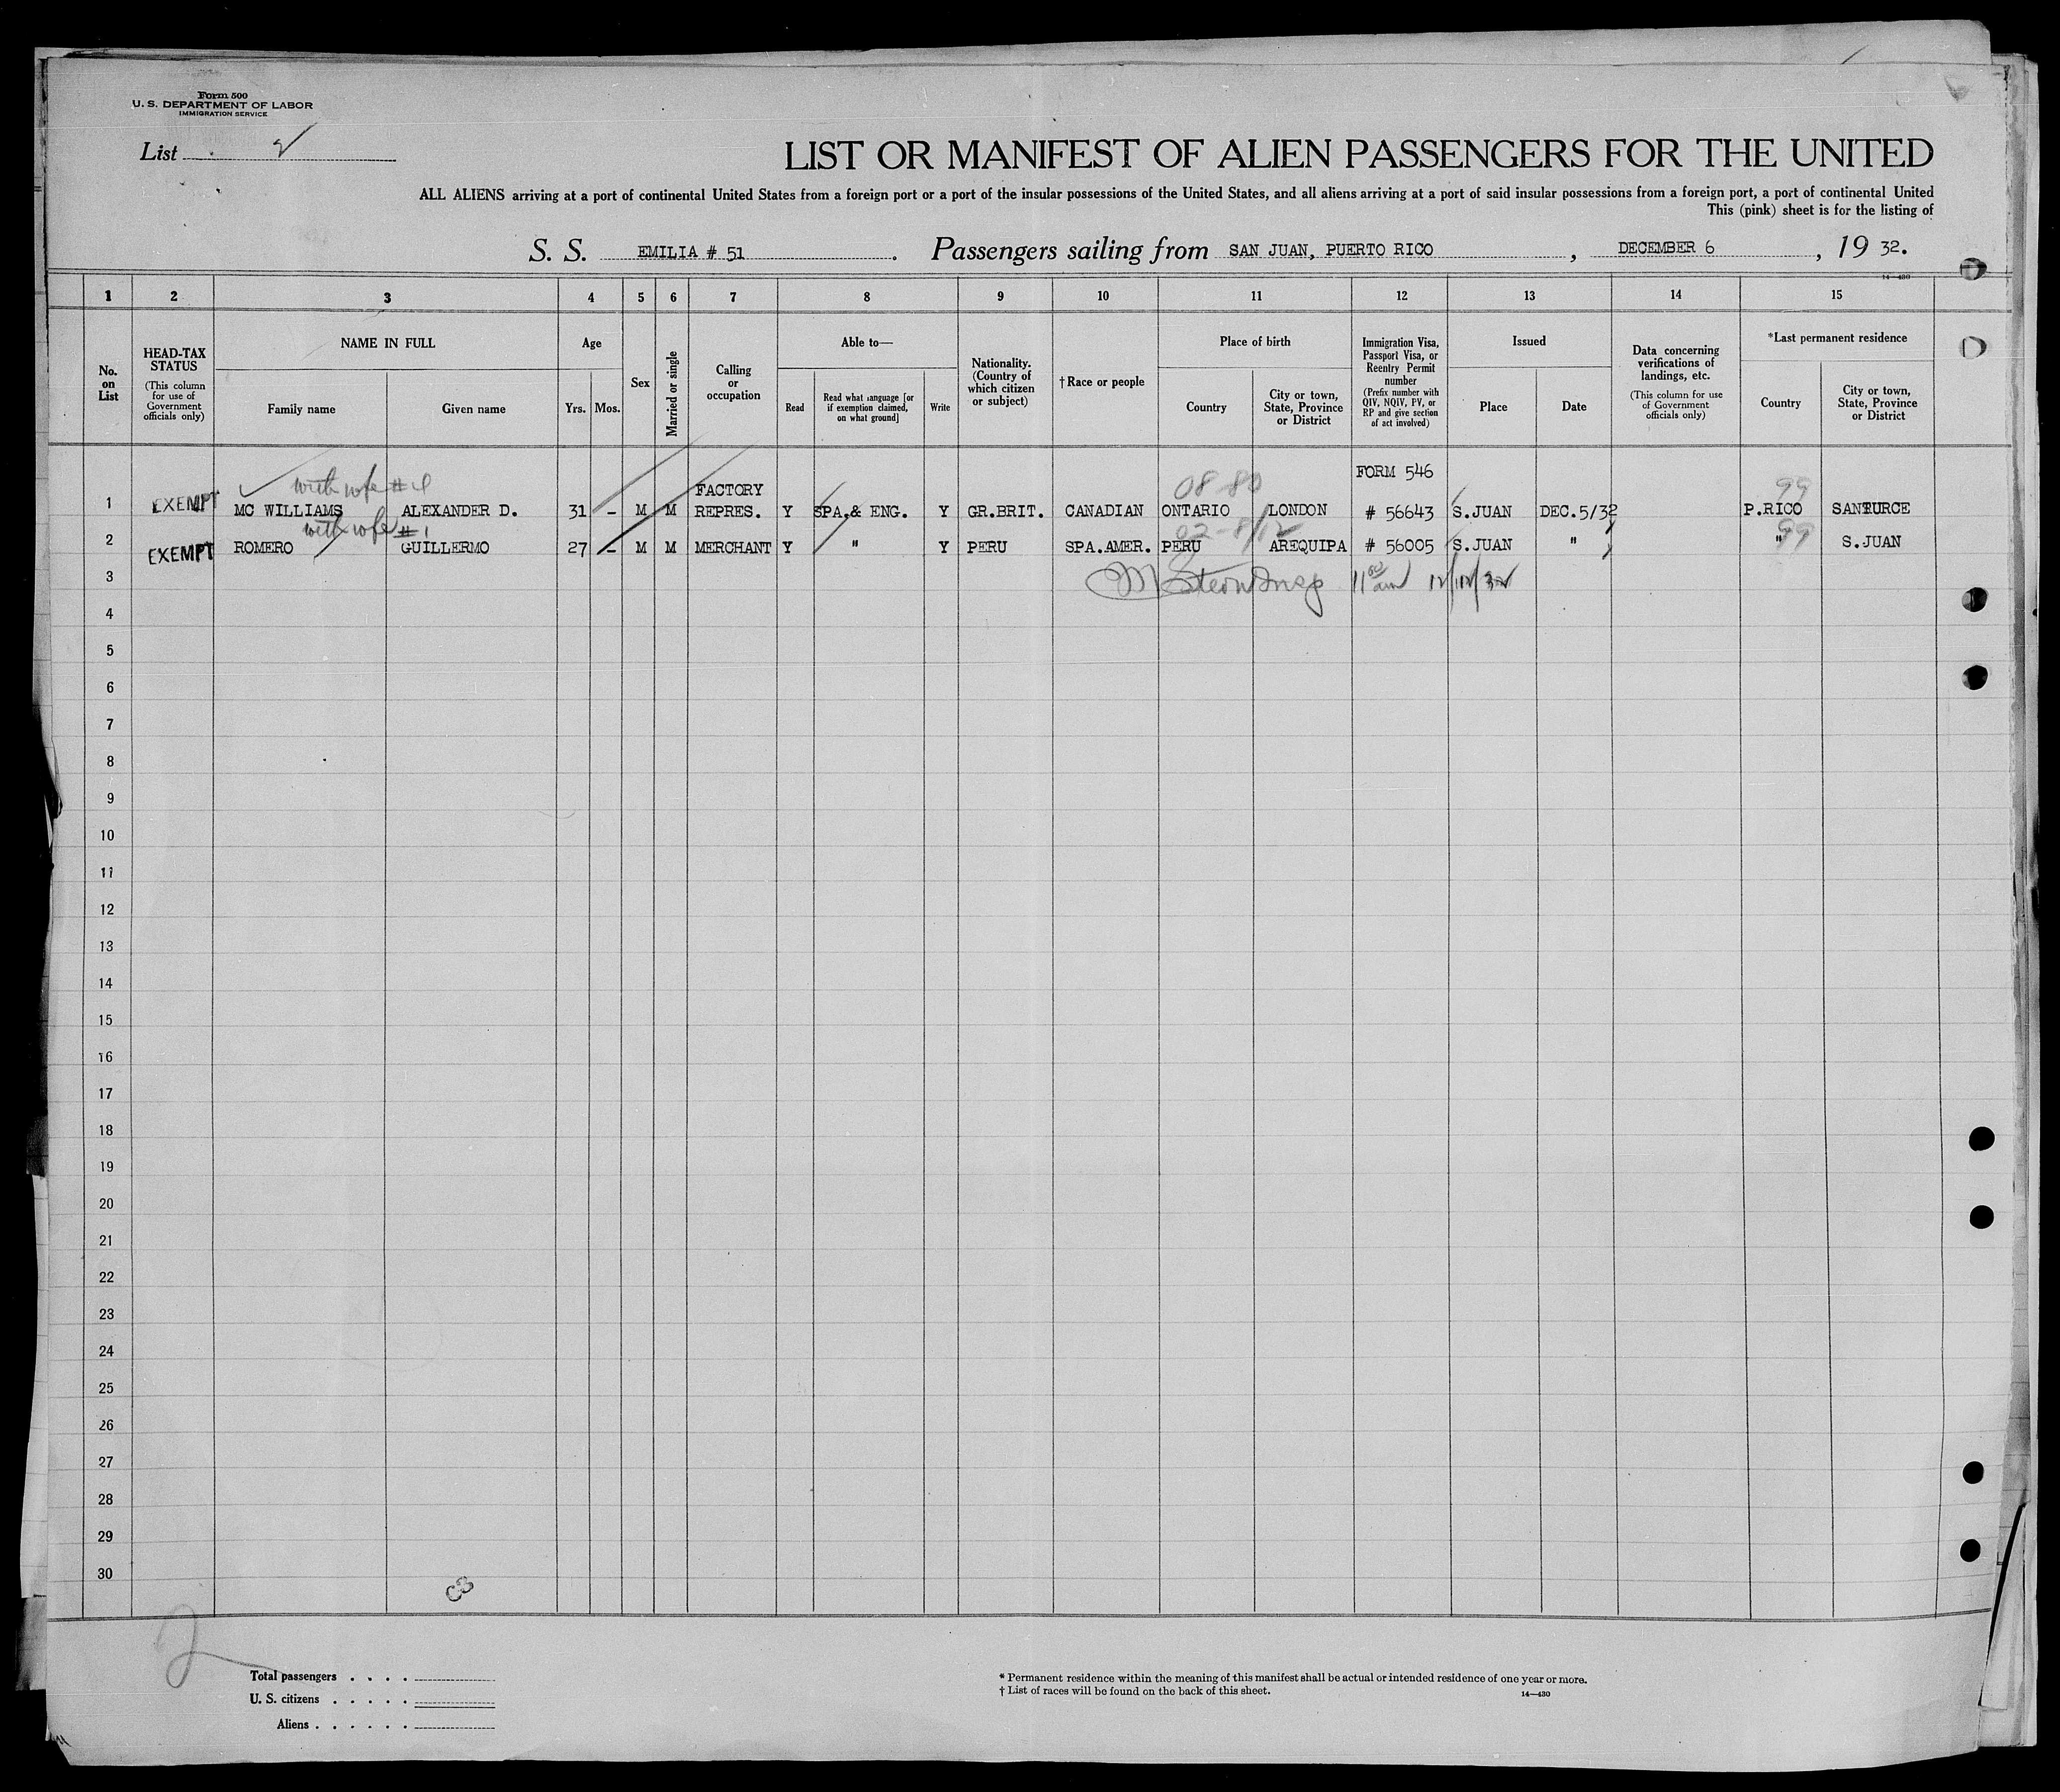 Form 500
U. S. DEPARTMENT OF LABOR
IMMIGRATION SERVICE
List 2
LIST OR MANIFEST OF ALIEN PASSENGERS FOR THE UNITED
ALL ALIENS arriving at a port of continental United States from a foreign port or a port of the insular possessions of the United States, and all aliens arriving at a port of said insular possessions from a foreign port, a port of continental United
This (pink) sheet is for the listing of
S. S. EMILIA # 51 . Passengers sailing from SAN JUAN, PUERTO RICO , DECEMBER 6 , 19 32.
14—430
1 2 3 4 5 6 7 8 9 10 11 12 13 14 15
No. on List
HEAD-TAX STATUS
(This column for use of Government officials only)
NAME IN FULL
Family name
Given name
Age
Yrs.
Mos.
Sex
Married or single
Calling or occupation
Able to—
Read
Read what language [or if exemption claimed, on what ground]
Write
Nationality. (Country of which citizen or subject)
†Race or people
Place of birth
Country
City or town, State, Province or District
Immigration Visa, Passport Visa, or Reentry Permit number
(Prefix number with QIV, NQIV, PV, or RP and give section of act involved)
Issued
Place
Date
Data concerning verifications of landings, etc.
(This column for use of Government officials only)
*Last permanent residence
Country
City or town, State, Province or District
FORM 546
with wife 08-80 99
FACTORY
1 EXEMPT MC WILLIAMS ALEXANDER D. 31 – M M REPRES. Y SPA.& ENG. Y GR.BRIT. CANADIAN ONTARIO LONDON # 56643 S.JUAN DEC.5/32 P.RICO SANTURCE
with wife # 1 99
2 EXEMPT ROMERO GUILLERMO 27 – M M MERCHANT Y " Y PERU SPA.AMER. PERU AREQUIPA # 56005 S.JUAN " " S.JUAN
3 11 am 12/12/32
4
5
6
7
8
9
10
11
12
13
14
15
16
17
18
19
20
21
22
23
24
25
26
27
28
29
30
2
Total passengers . . . .
U. S. citizens . . . . .
Aliens . . . . . .
* Permanent residence within the meaning of this manifest shall be actual or intended residence of one year or more.
† List of races will be found on the back of this sheet.
14—430